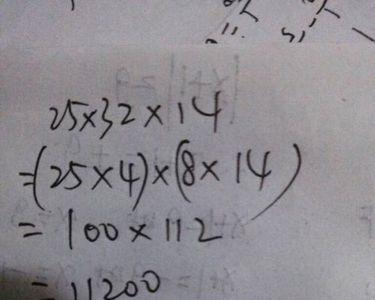 25×32×14
=(25×4)×(8×14)
=100×112
=11200